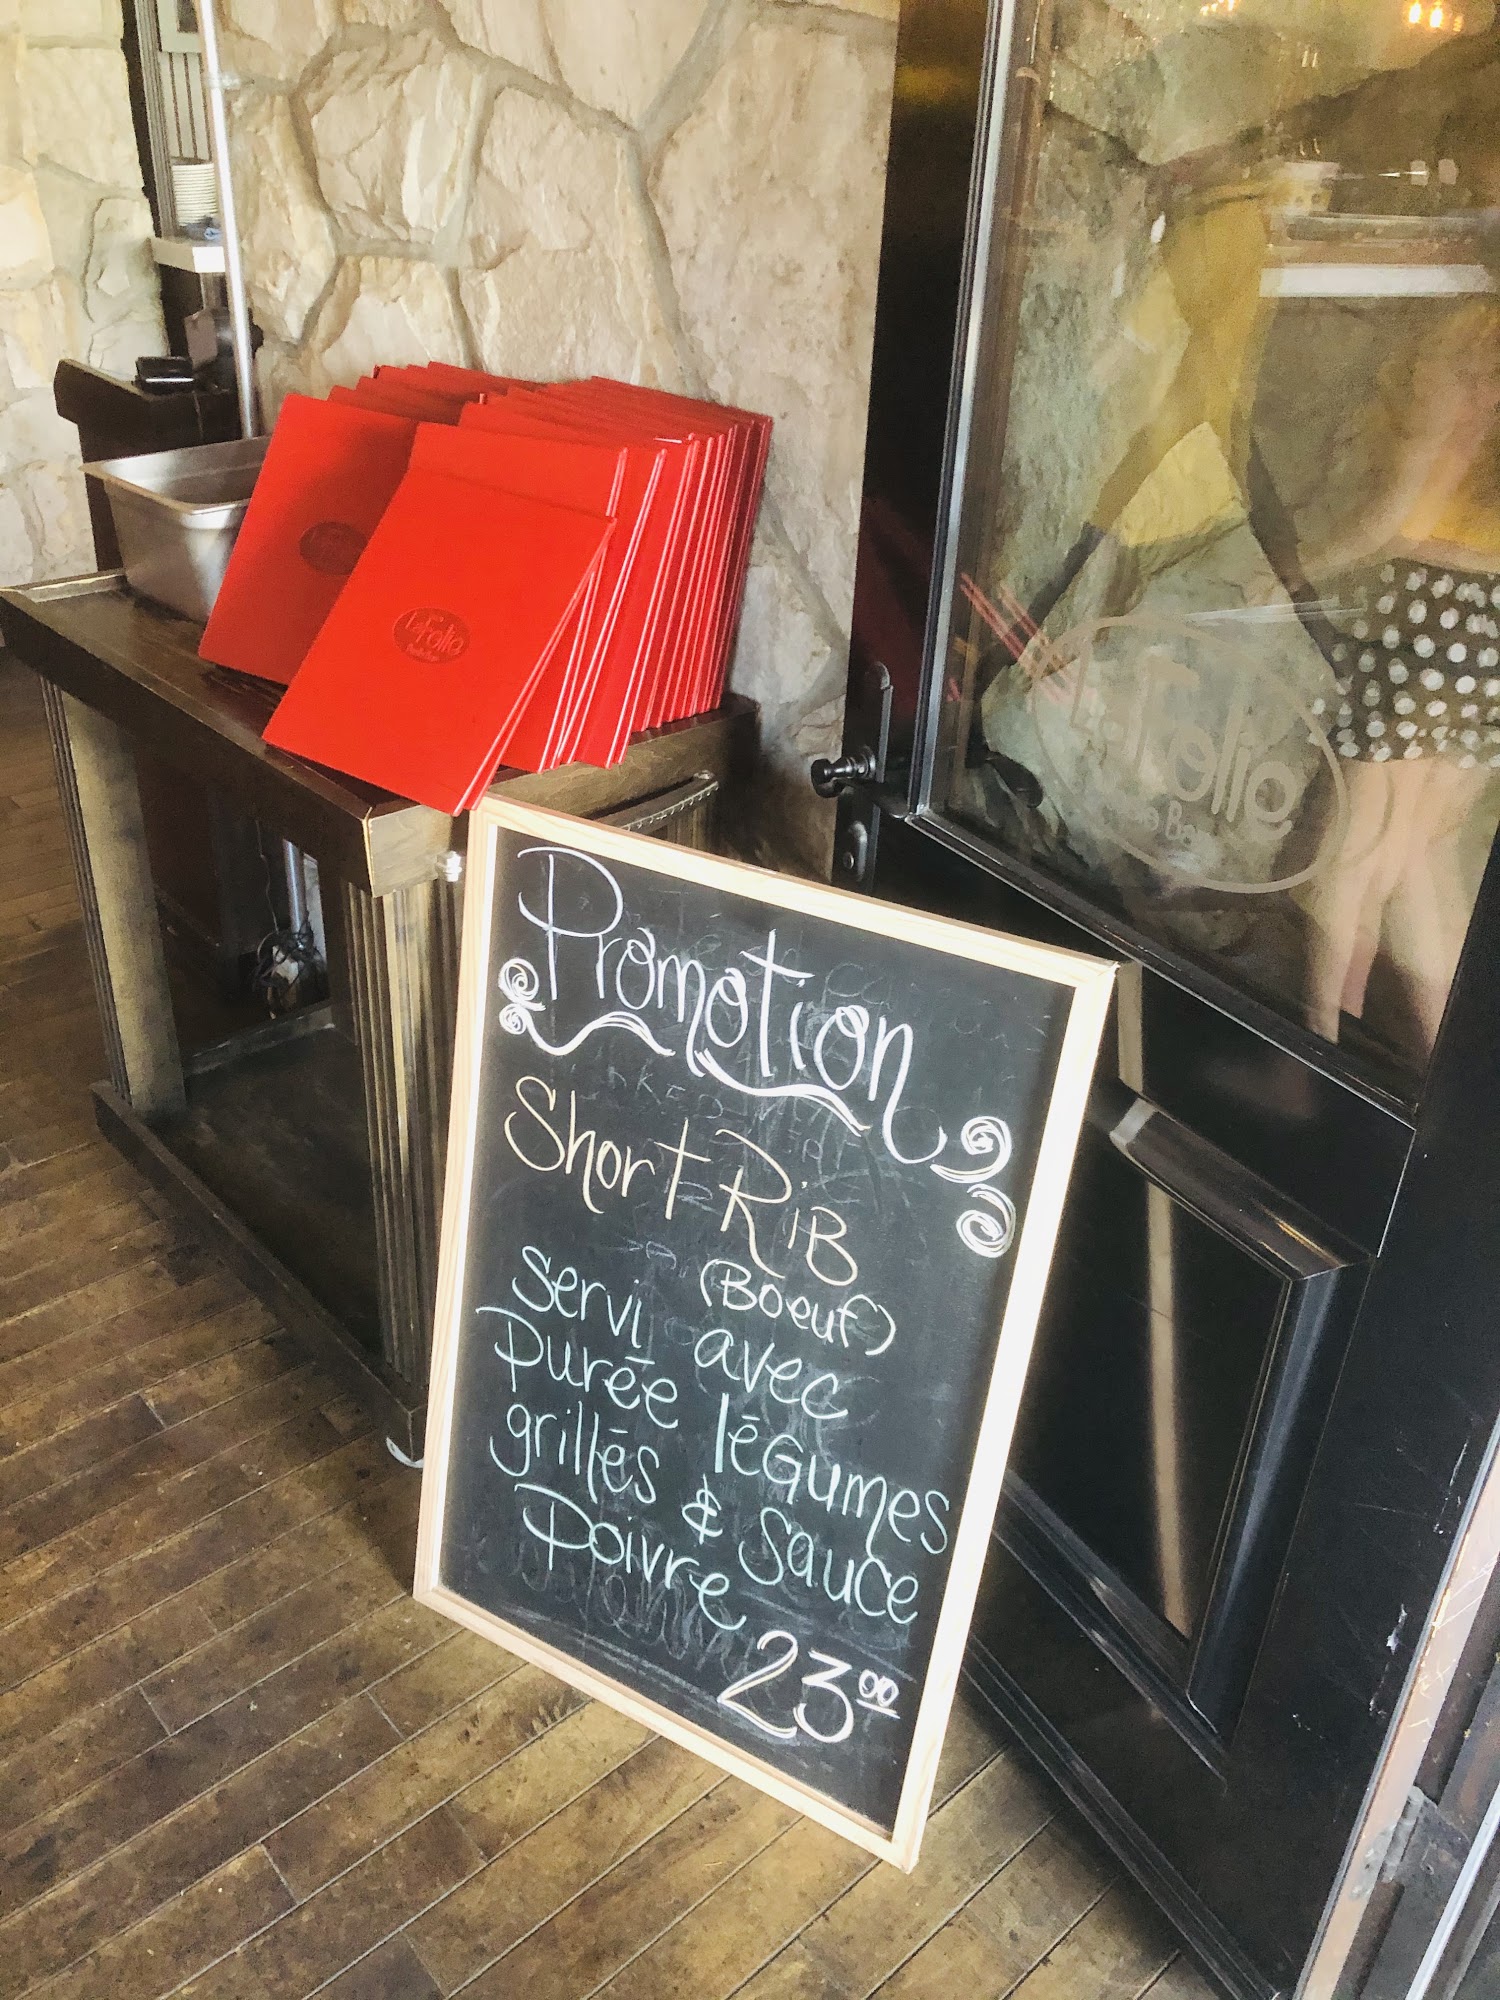 La Folia
Promotion
Short Rib
(Boeuf)
Servi avec
purée légumes
grillés & sauce
Poivre
23.00